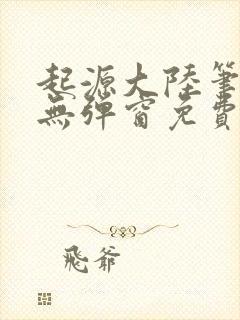 起源大陸筆
無彈窗免費
飛爺